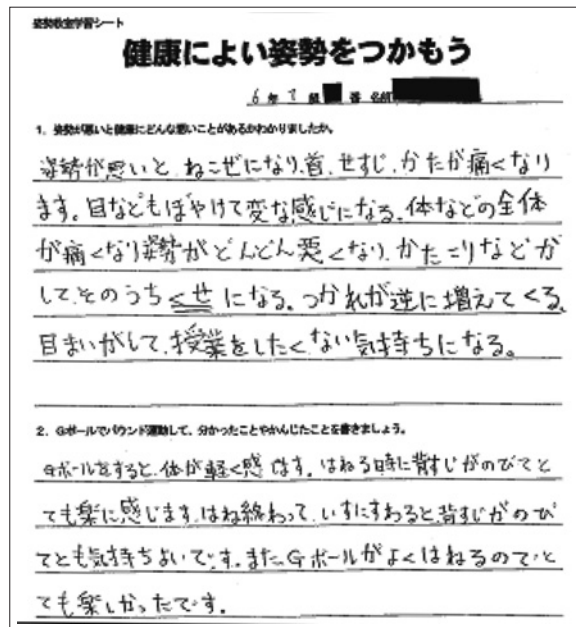 姿勢教室学習シート
健康によい姿勢をつかもう
6年 組 番 名前
1. 姿勢が悪いと健康にどんな悪いことがあるかわかりましたか。
姿勢が悪いと、ねこぜになり、首、せすじ、かたが痛くなり
ます。目などもぼやけて変な感じになる。体などの全体
が痛くなり姿勢がどんどん悪くなり、かたこりなどが
して、そのうちくせになる。つかれが逆に増えてくる。
目まいがして、授業をしたくない気持ちになる。
2. Gボールでバウンド運動して、分かったことやかんじたことを書きましょう。
Gボールをすると、体が軽く感じます。はねる時に背すじがのびてと
ても楽に感じます。はね終わって、いすにすわると、背すじがのび
てとも気持ちよいです。また、Gボールがよくはねるので、と
ても楽しかったです。